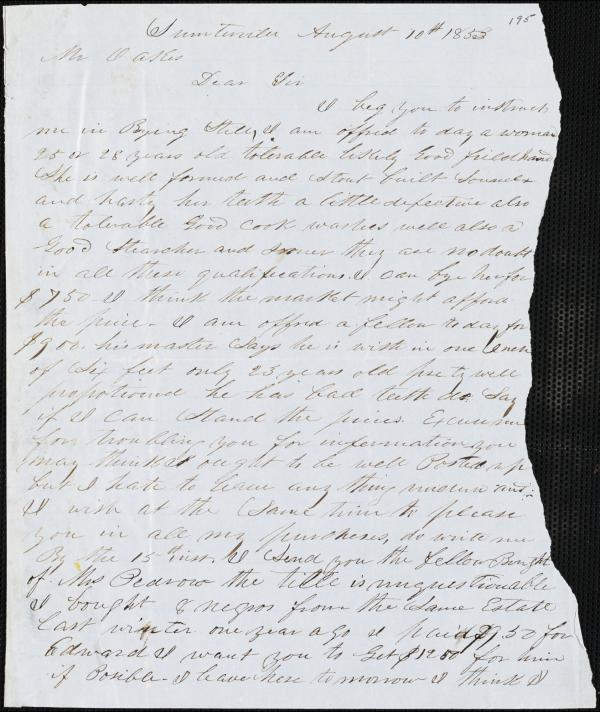 195
Sumterville August 10th 1853
Mr Oakes
Dear Sir
I beg you to instruct
me in Bying Still, I am offred to day a woman
25 or 28 years old tolerable likely Good fieldhand
She is well formed and Stout built Sound
and harty her teeth a little defective also
a tolerable Good cook washes well also a
Good Starcher and they are no doubt
in all these qualifications. I can bye her for
$750 - I think the market might afford
the price - I am offred a fellow to day for
$900. his master Says he is with in one
of Six feet only 23 years old pretty well
propotioned he has bad teeth do Say
if I can Stand the prices. Excuse me
for troubling you for information you
may think I ought to be well Posted up
but I hate to leave any thing and
I wish at the Same time to please
you in all my purchases, do write me
By the 15th inst, I Send you the fellow Bought
of Mrs Pedrow the title is unquestionable
I bought 8 negros from the Same Estate
last winter one year ago I paid $950 for
Edward I want you to Get $1250 for him
if Posible - I leave here to morrow I think I